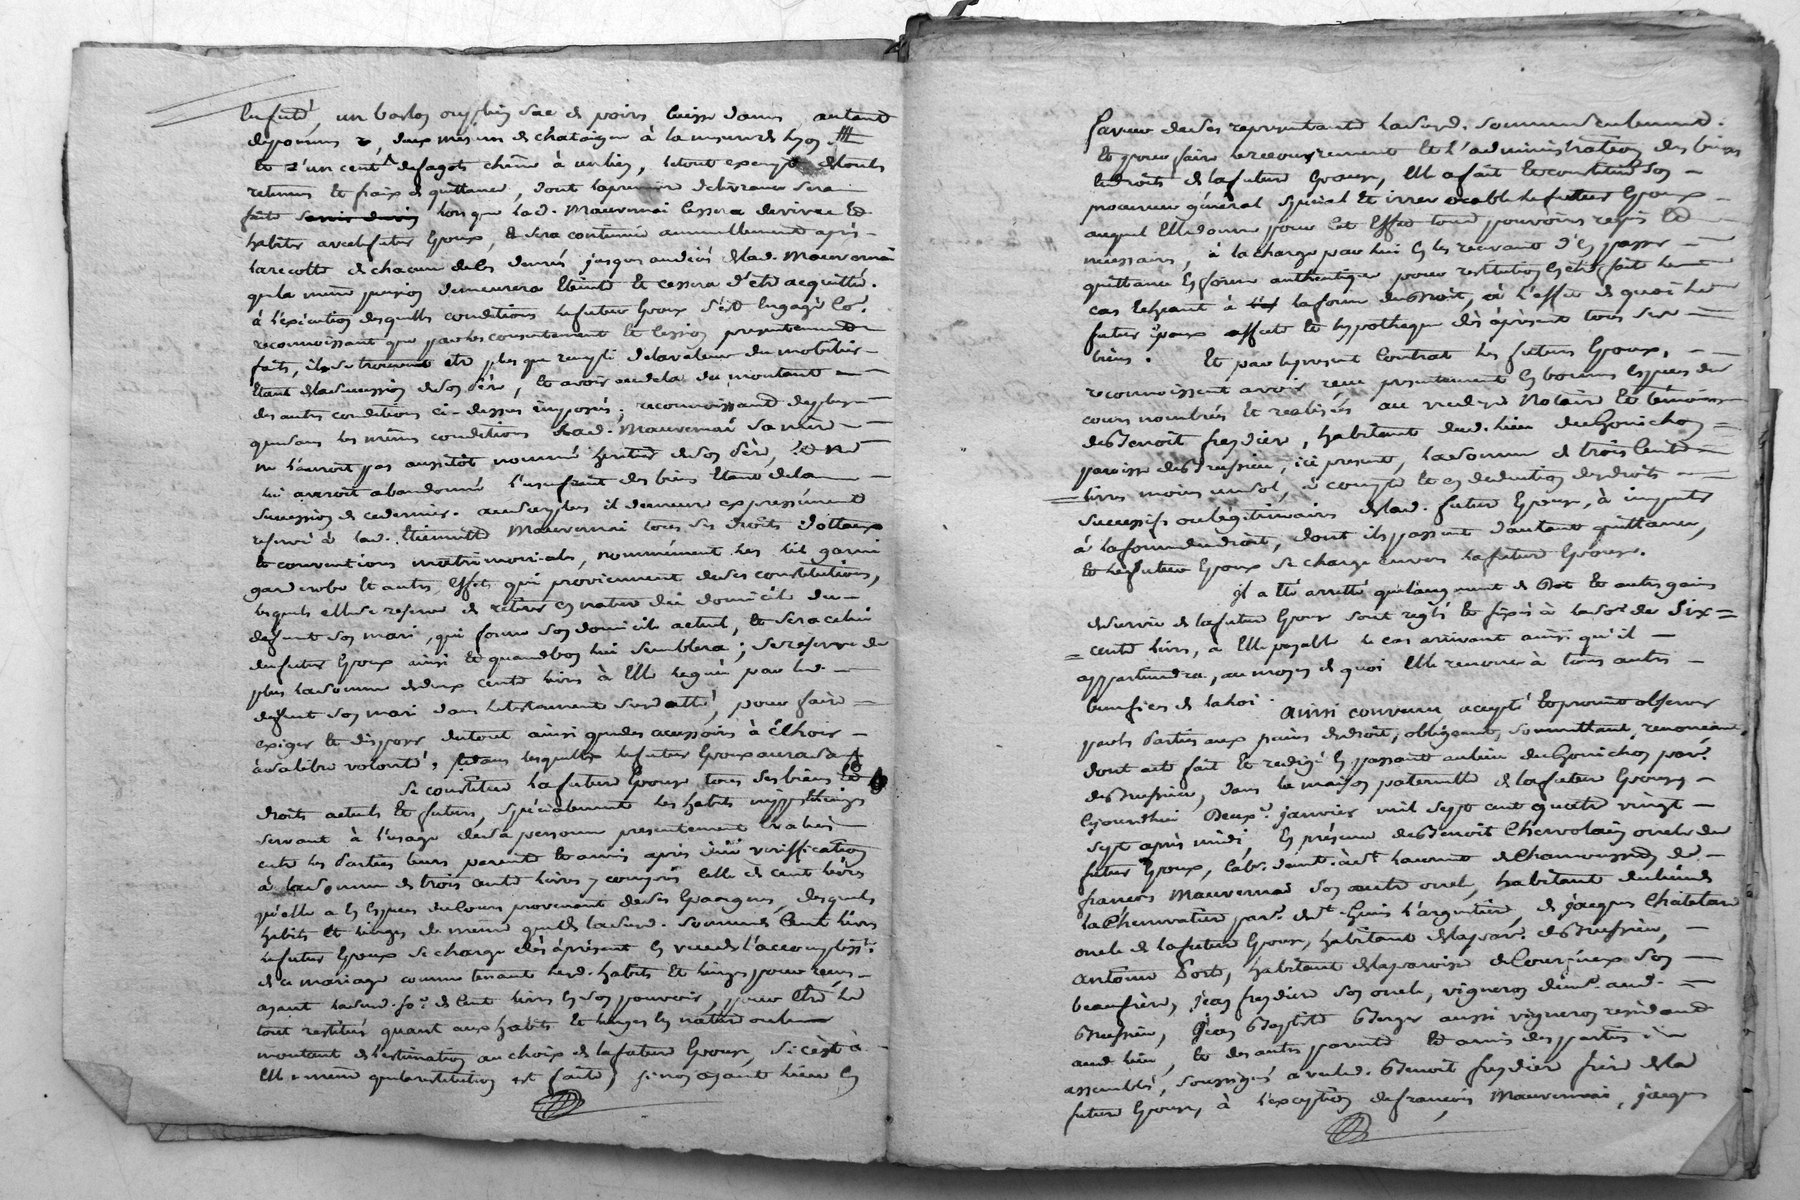 un boston ou plein sac de poires cuisse dame, autant
de pommes &, deux mesures de chataigne à la mesure de lyon
et d'un cent de fagots chêne à un lien, le tout exempt de toute
retenue et fraix de quittance, dont la premiere delivrance sera
faite lorsque lad. Mauvernai cessera de vivre et
habiter avec le futur Epoux, & sera continuée annuellement après
la recolte de chacune des denrées jusques au décès de lad. Mauvernai
que la même pension demeurera éteinte et cessera d'être acquittée.
à l'exécution desquelles conditions le futur Epoux s'est engagé
reconnoissant que par les consentement et cession presentement
faits, il se trouve être plus que rempli de la valeur du mobilier
étant de la succession de son père, et avoir au dela du montant
des autres conditions ci-dessus imposées; reconnoissant de plus
que sans les mêmes conditions lad. Mauvernai sa mère
ne l'auroit pas aussitôt nommé héritier de son père, et ne
lui auroit abandonné l'usufruit des biens étant de la
succession de ce dernier. au surplus il demeure expressément
reservé à lad. Etiennette Mauvernai tous ses droits dotaux
et conventions matrimoniales, nommément les lit garni
garderobe et autres effets qui proviennent de ses constitutions,
lesquels elle se reserve de retirer en nature du domicile du
défunt son mari, qui forme son domicile actuel, et sera celui
du futur Epoux ainsi et quand bon lui semblera; se reserve de
plus la somme de deux cents livres à elle léguée par led.
défunt son mari dans le testament susdatté, pour faire
exiger et disposer du tout ainsi que des accessoires à échoir
à sa libre volonté, dans lesquelles le futur Epoux aura sa
Se constitue la future Epouse tous ses biens et
droits actuels et futurs, spécialement les habits nippes linges
servant à l'usage de sa personne presentement évalués
entre les Parties leurs parents et amis après due veriffication
à la somme de trois cents livres y compris celle de cent livres
qu'elle a en espèces du cours provenant de ses Epargnes, desquels
habits et linges de même que de la susd. somme de Cent livres
le futur Epoux se charge dès àprésent en vue de l'accomplisst.
de ce mariage comme tenant lesd. habits et linges pour reçus
ayant lad. so.e de Cent livres en son pouvoir, pour être le
tout restitué quant aux habits et linges en nature ou le
montant de l'estimation au choix de la future Epouse, si c'est à
elle même que la restitution est faite, sinon ayant lieu en
faveur de ses representants la susd. somme seulement.
Et pour faire le recouvrement et l'administration des biens
et droits de la future Epouse, elle a fait et constitué son
procureur général spécial et irrevocable le futur Epoux
auquel elle donne pour cet effet tous pouvoirs requis et
necessaires, à la charge par lui en les recevant d'en passer
quittance en forme authentique pour restitution en être faite le
cas echéant à la forme du droit, à l'effet de quoi le
futur Epoux affecte et hypotheque dès àprésent tous ses
biens. Et par le présent Contrat les futurs Epoux,
reconnoissent avoir reçu presentement en bonnes espèces du
cours nombrées et realisées au vu du Notaire et témoins
de Benoit freydier, habitant dud. lieu du Gonichon
paroisse de Brussieu, ici present, la somme de trois Cents
livres moins un sol, à compte et en deduction des droits
successifs ou légitimaires de lad. future Epouse, à imputer
à la forme du droit, dont ils passent d'autant quittance,
et le futur Epoux se charge envers la future Epouse.
il a été arretté que l'augment de Dot et autres gains
de survie de la future Epouse sont reglés et fixés à la so.e de Six
cents livres, à elle payable le cas arrivant ainsi qu'il
appartiendra, au moyen de quoi elle renonce à tous autres
benefices de la loi.
ainsi convenu accepté et promis observer
par les Parties aux peines de droit, obligeant, soumettant, renonçant
dont acte fait et redigé en passant au lieu du Gonichon par.
de Brussieu, dans la maison paternelle de la future Epouse
cejourdhui Deux janvier mil sept cent quatre vingt
sept après midi, en présence de Benoit Chervolain oncle du
futur Epoux, lab. demt. à St. laurent de Chamousset, de
francois Mauvernai son autre oncle, habitant du lieu de
la Chervratier par. de St. Genis l'argentiere, de jacques Chatelard
oncle de la future Epouse, habitant de la par. de Brussieu,
antoine Port, habitant de la paroisse de Courzieux son
beaufrère, jean freydier son oncle, vigneron demt. aud.
Brussieu, jean Baptiste Berger aussi vigneron residant
aud. lieu, et des autres parents et amis des parties
assemblés, soussignés avec led. Benoit freydier frère de la
future Epouse, à l'exception de francois Mauvernai, jacques